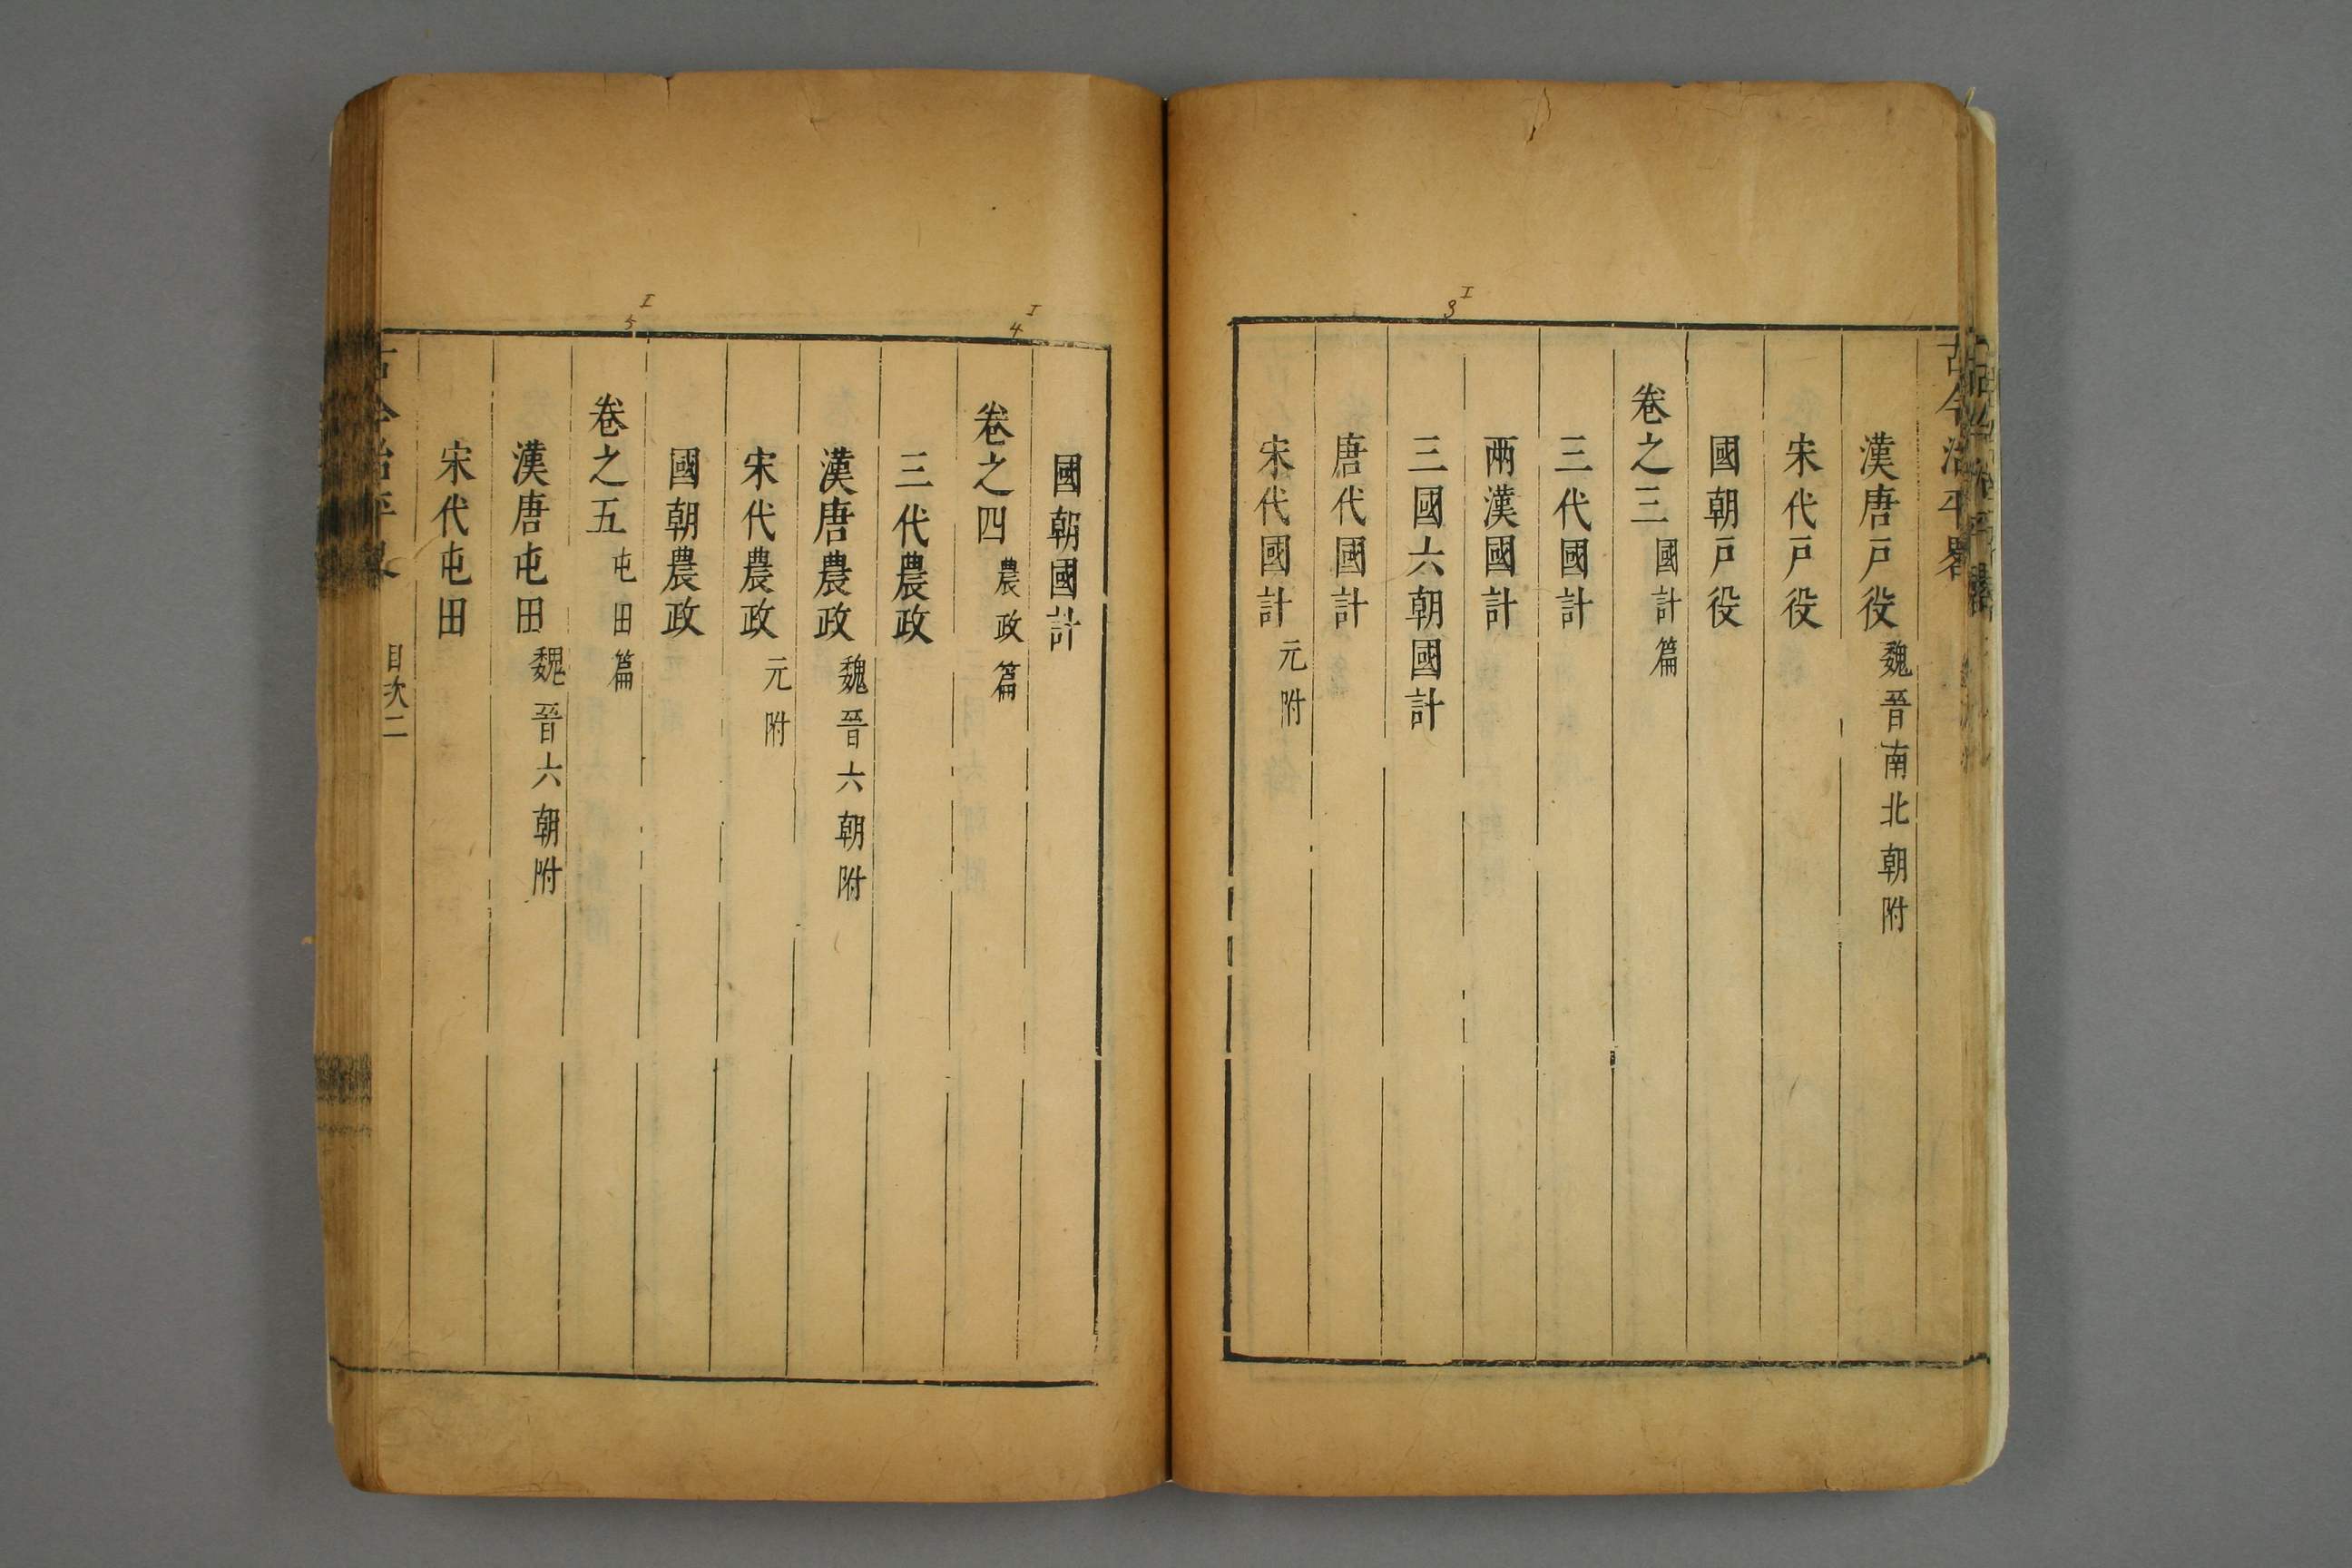 古今治平畧
漢唐戶役 魏晉南北朝附
宋代戶役
國朝戶役
卷之三 國計篇
三代國計
兩漢國計
三國六朝國計
唐代國計
宋代國計 元附
I 3
國朝國計
卷之四 農政篇
三代農政
漢唐農政 魏晉六朝附
宋代農政 元附
國朝農政
卷之五 屯田篇
漢唐屯田 魏晉六朝附
宋代屯田
古今治平畧 目次二
I 4
I 5